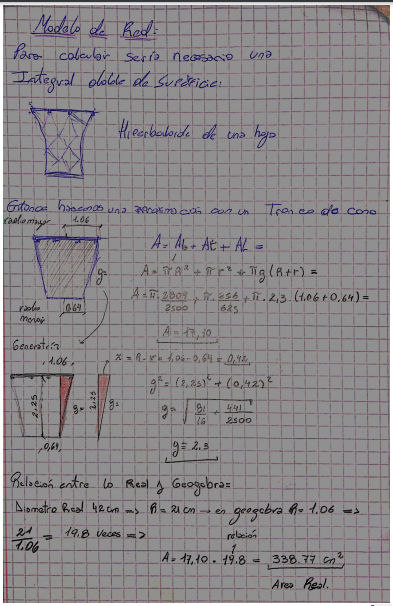 Modelo de Red:
Para calcular sería necesario una
Integral doble de Superficie:
Hiperboloide de una hoja
Entonces hacemos una aproximación con un Tronco de cono
radio mayor 1.06
A = Ab + At + AL =
g=
A = π R² + π r² + π g (R+r) =
A = π · 2809/2500 + π · 256/625 + π · 2,3 · (1.06 + 0,64) =
radio menor 0,64
A = 17,10
Generatriz
1.06
x = R - r = 1.06 - 0,64 = 0,42
g² = (2,25)² + (0,42)²
2.25 g= 2,25 g=
g = √81/16 + 441/2500
0,64
g = 2.3
Relación entre lo Real y Geogebra =
Diametro Real 42 cm => R = 21 cm → en geogebra R = 1.06 =>
21/1.06 = 19.8 veces =>
relación
A = 17,10 · 19.8 = 338.77 cm²
Area Real.